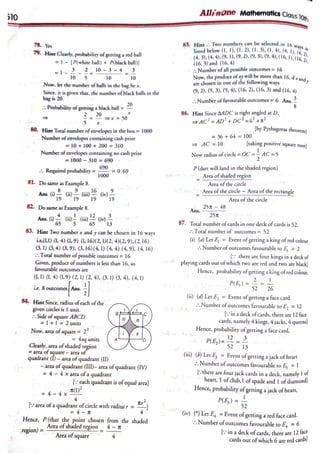 510
All in one Mathematics Class 10th
78. Yes
79. Hint Clearly, probability of getting a red ball
= 1 − [P(white ball) + P(black ball)]
= 1 − 3/10 − 2/5 = (10 − 3 − 4)/10 = 3/10
Now, let the number of balls in the bag be x.
Since, it is given that, the number of black balls in the
bag is 20.
∴ Probability of getting a black ball = 20/x
⇒ 2/5 = 20/x ⇒ x = 50
80. Hint Total number of envelopes in the box = 1000
Number of envelopes containing cash prize
= 10 + 100 + 200 = 310
Number of envelopes containing no cash prize
= 1000 − 310 = 690
∴ Required probability = 690/1000 = 0.69
81. Do same as Example 8.
82. Do same as Example 8.
83. Hint Two number x and y can be chosen in 16 ways
(3, 1) (3, 4) (3, 9), (3, 16) (4, 1) (4, 4) (4, 9), (4, 16)
∴ Total number of possible outcomes = 16
Given, product of numbers is less than 16, so
favourable outcomes are
(1, 1) (1, 4) (1, 9) (2, 1) (2, 4), (3, 1) (3, 4), (4, 1)
i.e. 8 outcomes [Ans. 1/2]
84. Hint Since, radius of each of the
given circles is 1 unit.
∴ Side of square ABCD
= 1 + 1 = 2 units
Now, area of square = 2²
= 4sq units
Clearly, area of shaded region
= area of square − area of
quadrant (I) − area of quadrant (II)
− area of quadrant (III) − area of quadrant (IV)
= 4 − 4 × area of a quadrant
[∵ each quadrant is of equal area]
= 4 − 4 × π(1)²/4
[∵ area of a quadrant of circle with radius r = πr²/4]
= 4 − π
Hence, P(that the point chosen from the shaded
region) = Area of shaded region / Area of square = (4 − π)/4
85. Hint Two numbers can be selected in 16 ways as
listed below (1, 1), (1, 2), (1, 3), (1, 4), (4, 1), (4, 2),
(4, 3) (4, 4), (9, 1), (9, 2), (9, 3), (9, 4), (16, 1), (16, 2),
(16, 3) and (16, 4)
∴ Number of all possible outcomes = 16
Now, the product of xy will be more than 16, if x and y
are chosen in one of the following ways
(9, 2), (9, 3), (9, 4), (16, 2), (16, 3) and (16, 4)
∴ Number of favourable outcomes = 6
86. Hint Since ΔADC is right angled at D.
⇒ AC² = AD² + DC² = 6² + 8²
[by Pythagoras theorem]
= 36 + 64 = 100
⇒ AC = 10 [taking positive square root]
Now radius of circle = OC = 1/2 AC = 5
P (dart will land in the shaded region)
= Area of shaded region / Area of the circle
= (Area of the circle − Area of the rectangle) / Area of the circle
Ans. (25π − 48)/25π
87. Total number of cards in one deck of cards is 52.
∴ Total number of outcomes = 52
(i) Let E₁ = Event of getting a king of red colour
∴ Number of outcomes favourable to E₁ = 2
[∵ there are four kings in a deck of
playing cards out of which two are red and two are black]
Hence, probability of getting a king of red colour,
P(E₁) = 2/52 = 1/26
(ii) Let E₂ = Event of getting a face card
∴ Number of outcomes favourable to E₂ = 12
[∵ in a deck of cards, there are 12 face
cards, namely 4 kings, 4 jacks, 4 queens]
Hence, probability of getting a face card,
P(E₂) = 12/52 = 3/13
(iii) Let E₃ = Event of getting a jack of heart
∴ Number of outcomes favourable to E₃ = 1
[∵ there are four jack cards in a deck, namely 1 of
heart, 1 of club, 1 of spade and 1 of diamond]
Hence, probability of getting a jack of heart,
P(E₃) = 1/52
(iv) Let E₄ = Event of getting a red face card.
∴ Number of outcomes favourable to E₄ = 6
[∵ in a deck of cards, there are 12 face
cards out of which 6 are red cards]